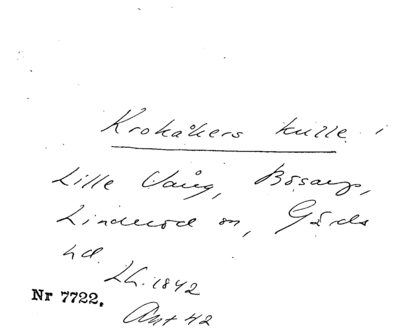 Krokåkers kulle i
Lille Vång, Bösarp,
Linderöd sn, Gärds
hd. Lh. 1842
Nr 7722. Ant 42